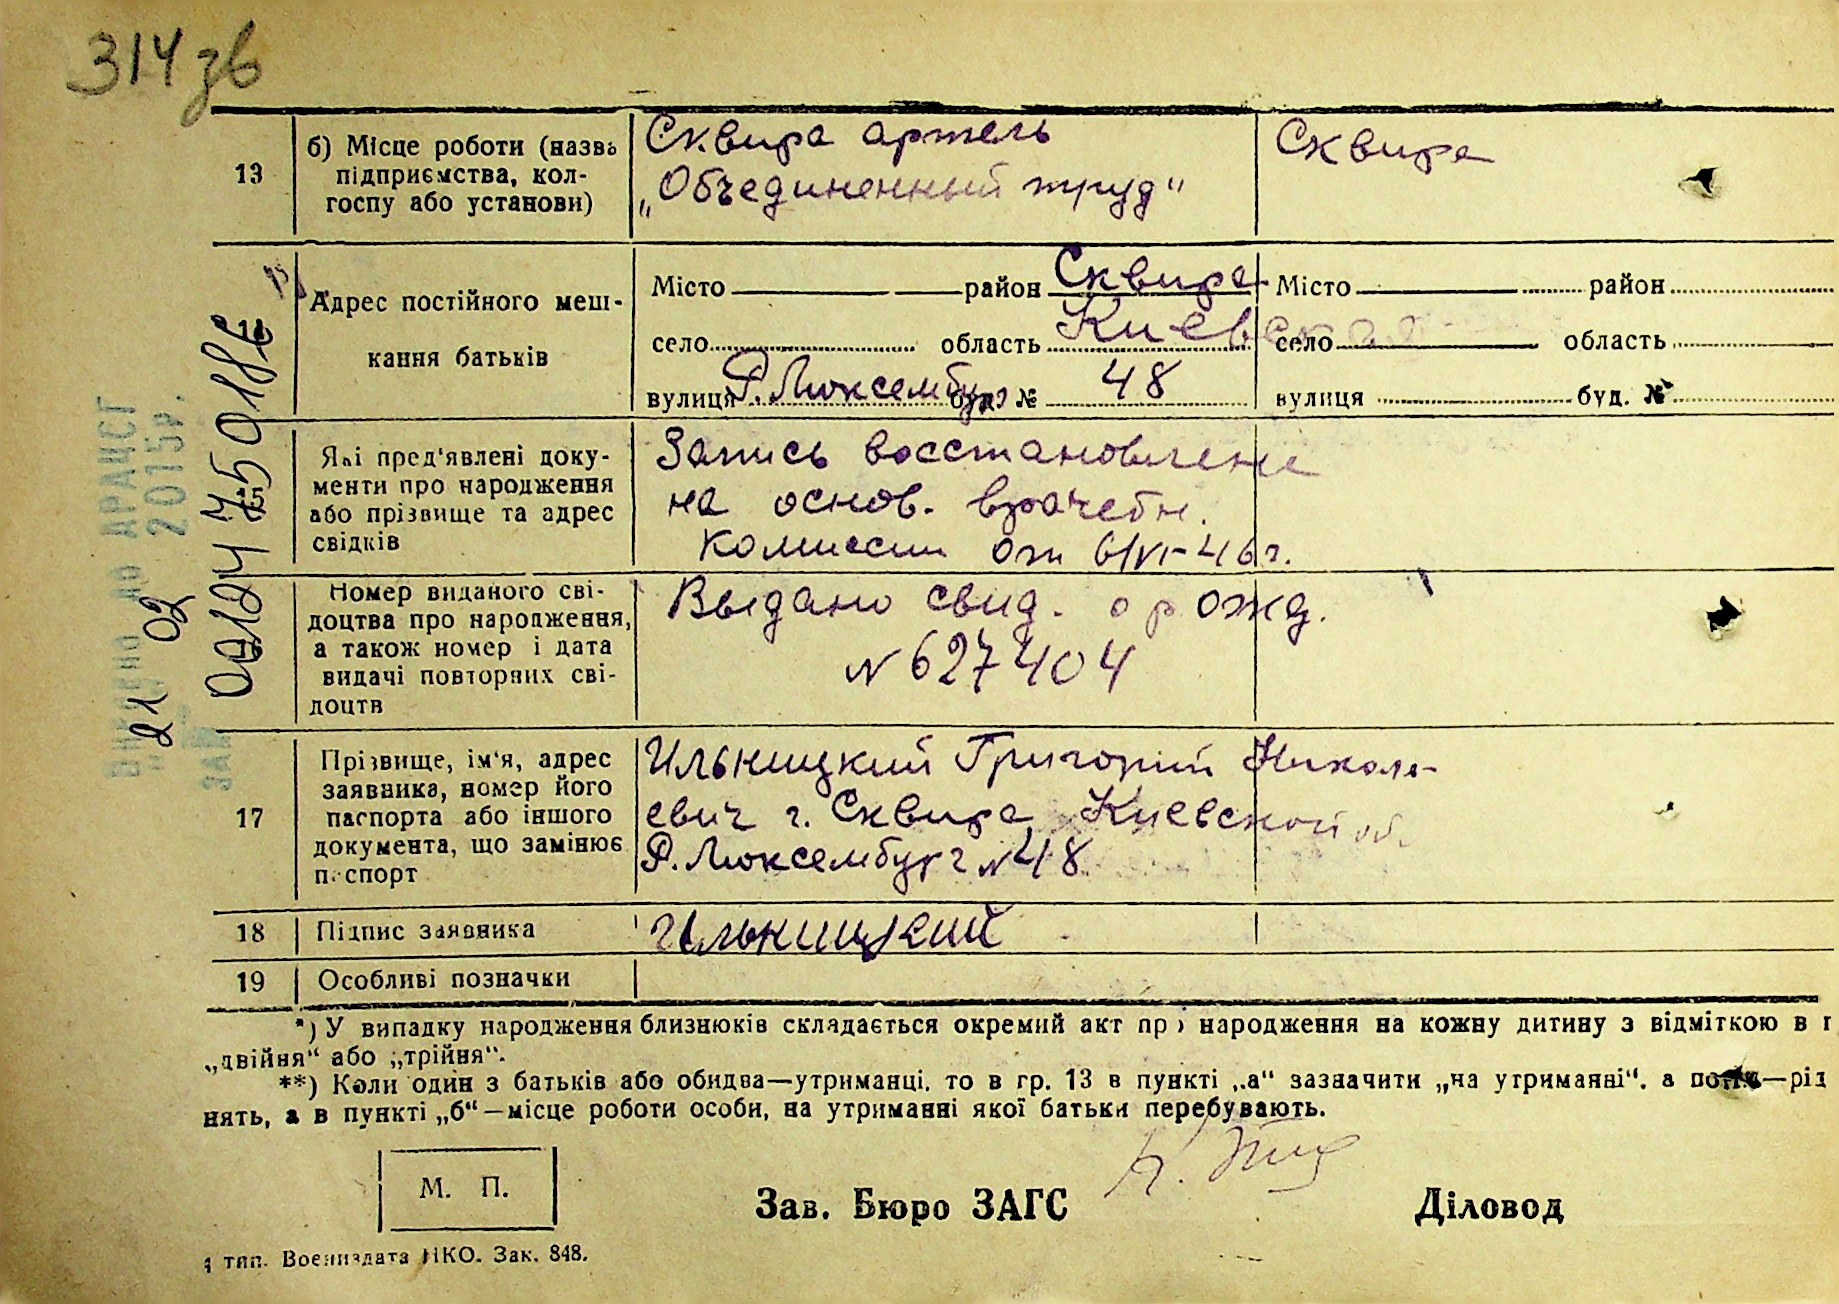 314 зв
13
б) Місце роботи (назва
підприємства, кол-
госпу або установи)
Сквира артель
„Объединенный труд"
Сквира
Адрес постійного меш-
кання батьків
Місто район Сквира
село область Киевская
вулиця Р. Люксембург буд. № 48
Місто район
село область
вулиця буд. №
15
Які пред'явлені доку-
менти про народження
або прізвище та адрес
свідків
Запись восстановлена
на основ. врачебн.
комиссии от 6/VI-46 г.
Номер виданого сві-
доцтва про народження,
а також номер і дата
видачі повторних сві-
доцтв
Выдано свид. о рожд.
N 627404
17
Прізвище, ім'я, адрес
заявника, номер його
паспорта або іншого
документа, що замінює
паспорт
Ильницкий Григорий Никола-
евич г. Сквира Киевской об.
Р. Люксембург N 48
18
Підпис заявника
Ильницкий
19
Особливі позначки
*) У випадку народження близнюків складається окремий акт про народження на кожну дитину з відміткою в г
„двійня" або „трійня".
**) Коли один з батьків або обидва—утриманці, то в гр. 13 в пункті „а" зазначити „на утриманні", а потім—рід
нять, а в пункті „б"—місце роботи особи, на утриманні якої батьки перебувають.
М. П.
Зав. Бюро ЗАГС
Діловод
тип. Воениздата НКО. Зак. 848.
ДРАЦСГ
2015р.
21 02